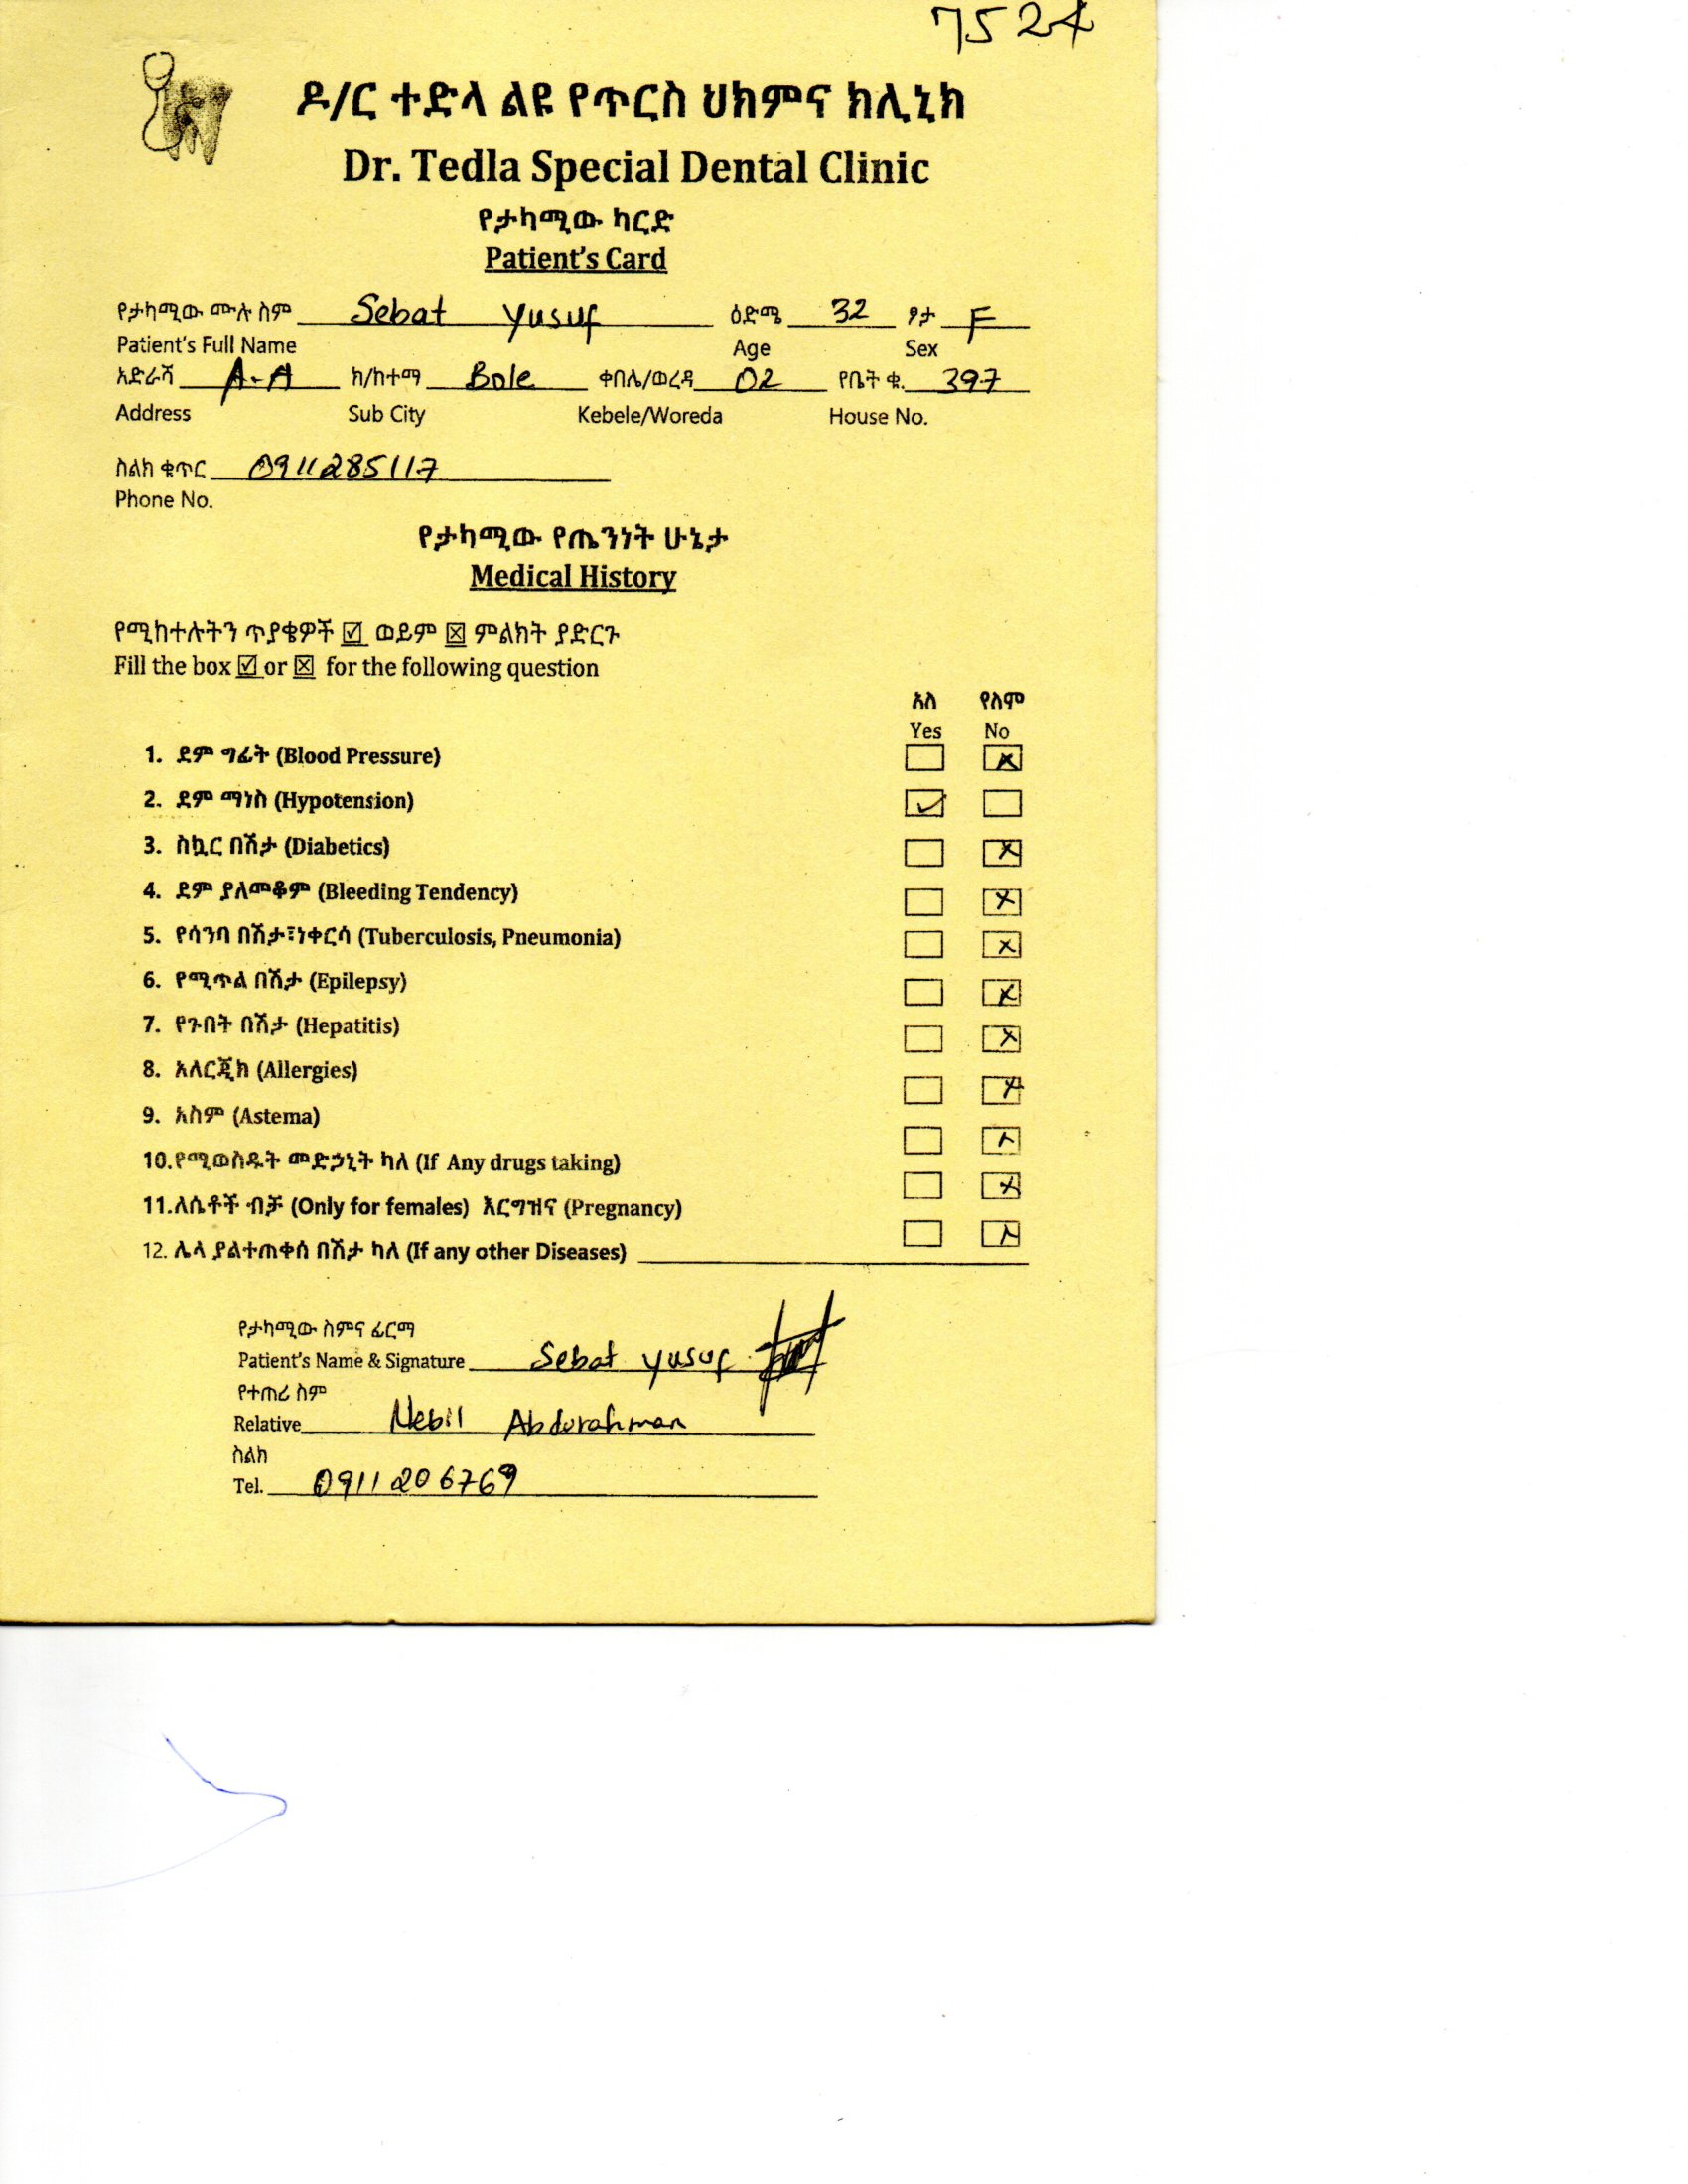 7524
ዶ/ር ተድላ ልዩ የጥርስ ህክምና ክሊኒክ
Dr. Tedla Special Dental Clinic
የታካሚው ካርድ
Patient's Card
የታካሚው ሙሉ ስም Sebat Yusuf ዕድሜ 32 ፆታ F
Patient's Full Name Age Sex
አድራሻ A.A ክ/ከተማ Bole ቀበሌ/ወረዳ 02 የቤት ቁ. 397
Address Sub City Kebele/Woreda House No.
ስልክ ቁጥር 0911285117
Phone No.
የታካሚው የጤንነት ሁኔታ
Medical History
የሚከተሉትን ጥያቄዎች ☑ ወይም ☒ ምልክት ያድርጉ
Fill the box ☑ or ☒ for the following question
አለ የለም
Yes No
1. ደም ግፊት (Blood Pressure) ☐ ☒
2. ደም ማነስ (Hypotension) ☑ ☐
3. ስኳር በሽታ (Diabetics) ☐ ☒
4. ደም ያለመቆም (Bleeding Tendency) ☐ ☒
5. የሳንባ በሽታ፣ነቀርሳ (Tuberculosis, Pneumonia) ☐ ☒
6. የሚጥል በሽታ (Epilepsy) ☐ ☒
7. የጉበት በሽታ (Hepatitis) ☐ ☒
8. አለርጂክ (Allergies) ☐ ☒
9. አስም (Astema) ☐ ☒
10.የሚወስዱት መድኃኒት ካለ (If Any drugs taking) ☐ ☒
11.ለሴቶች ብቻ (Only for females) እርግዝና (Pregnancy) ☐ ☒
12. ሌላ ያልተጠቀሰ በሽታ ካለ (If any other Diseases)
የታካሚው ስምና ፊርማ
Patient's Name & Signature Sebat Yusuf
የተጠሪ ስም
Relative Nebil Abdurahman
ስልክ
Tel. 0911206769